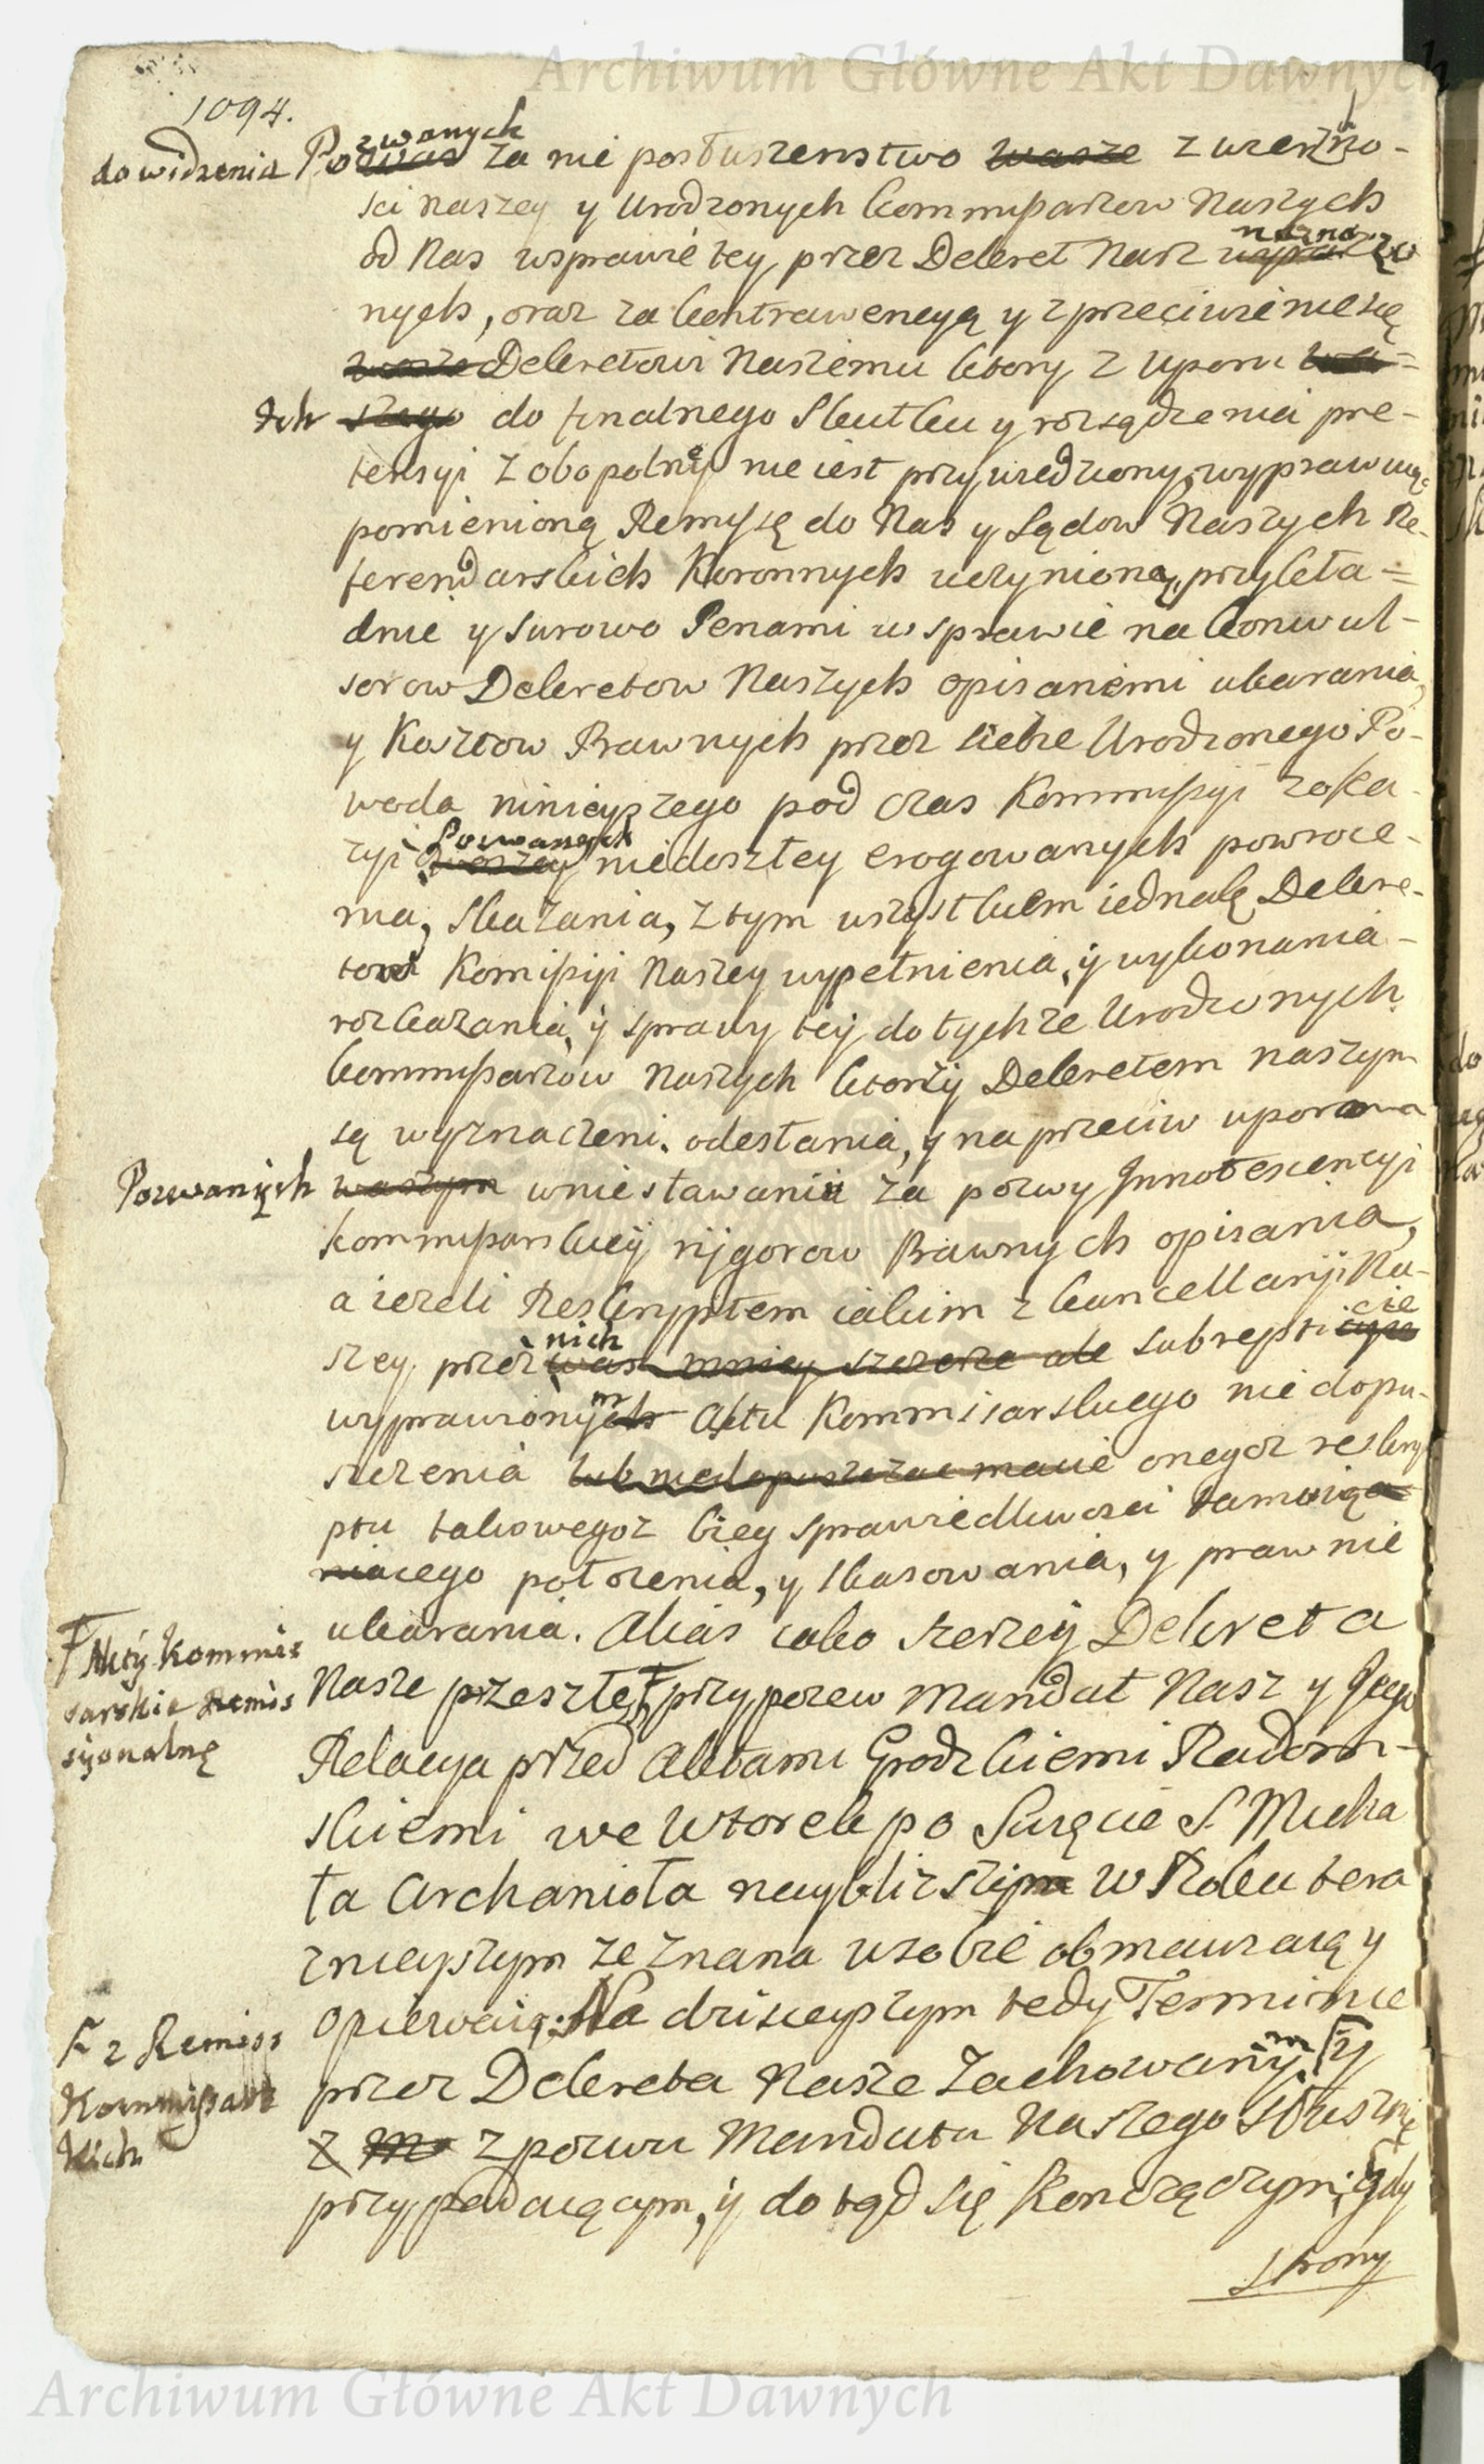 Archiwum Główne Akt Dawnych
1094.
do widzenia Pozwanych za nie posłuszenstwo wasze zwierzchno-
sci naszey y Urodzonych Kommissarzow Naszych
od Nas wsprawie tey przez Dekret Nasz naznaczo
nych, oraz za kontrawencyą y zprzeciwienie się
wasze Dekretowi Naszemu ktory z uporu wa=
Ich szego do finalnego Skutku y rozsądzenia pre-
tensyi z obopolney nie iest przywiedziony, wyprawuiąc
pomienioną Remissę do Nas y Sądow Naszych Re-
ferendarskich Koronnych uczynioną, przykła=
dnie y surowo Penami w sprawie na konwul-
sorow Dekretow Naszych opisanemi ukarania,
y Kosztow Prawnych przez siebie Urodzonego Po-
woda ninieyszego pod czas Kommissyi z oka-
zyi Pozwanych waszey niedoszłey erogowanych powroce-
nia, skazania, z tym wszystkiem iednakę Dekre-
towi Komissyi Naszey wypełnienia, y wykonania-
rozkazania, y sprawy tey do tychże Urodzonych
Kommissarzow Naszych ktorzy Dekretem naszym
są wyznaczeni. odesłania, y na przeciw uporowi
Pozwanych waszym wniestawaniu za pozwy Innotescencyi
kommissarskiey rygorow Prawnych opisania,
a ieżeli Reskryptem iakim z kancellaryi Na-
szey przez nich was mniey szczerze ale subrepticie
wyprawionym Aktu Kommisarskiego nie dopu-
szczenia lub niedopuszczac macie onegoż reskry
ptu takowegoż bieg sprawiedliwosci tamuią
niącego położenia, y skasowania, y prawnie
ukarania. Alias iako szerzey Dekreta
Ŧ Akty Kommis Nasze przeszłe Ŧ przypozew Mandat Nasz y Jego
sarskie Remis Relacya przed Aktami Grodzkiemi Radom-
syonalnę skiemi we Wtorek po Swięcie S. Micha
ła Archanioła nayblizszym w Roku tera
znieyszym zeznana w sobie obmawiaią y
opiewaią: Na dzisieyszym tedy Terminie
F z Remiss przez Dekreta Nasze zachowanym F y
Kommissars z Ma z pozwu Mandatu Naszego słusznie
kich przypadaiącym, y dotąd się Kończącym; gdy
strony
Archiwum Główne Akt Dawnych